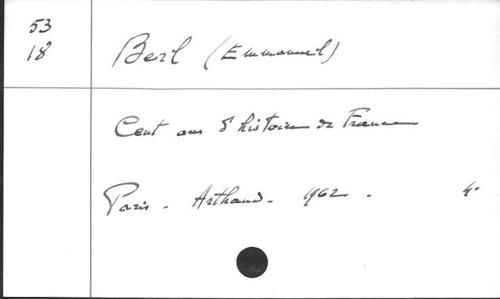 53
18
Berl (Emmanuel)
Cent ans d'histoire de France
Paris. Arthaud. 1962. 4°